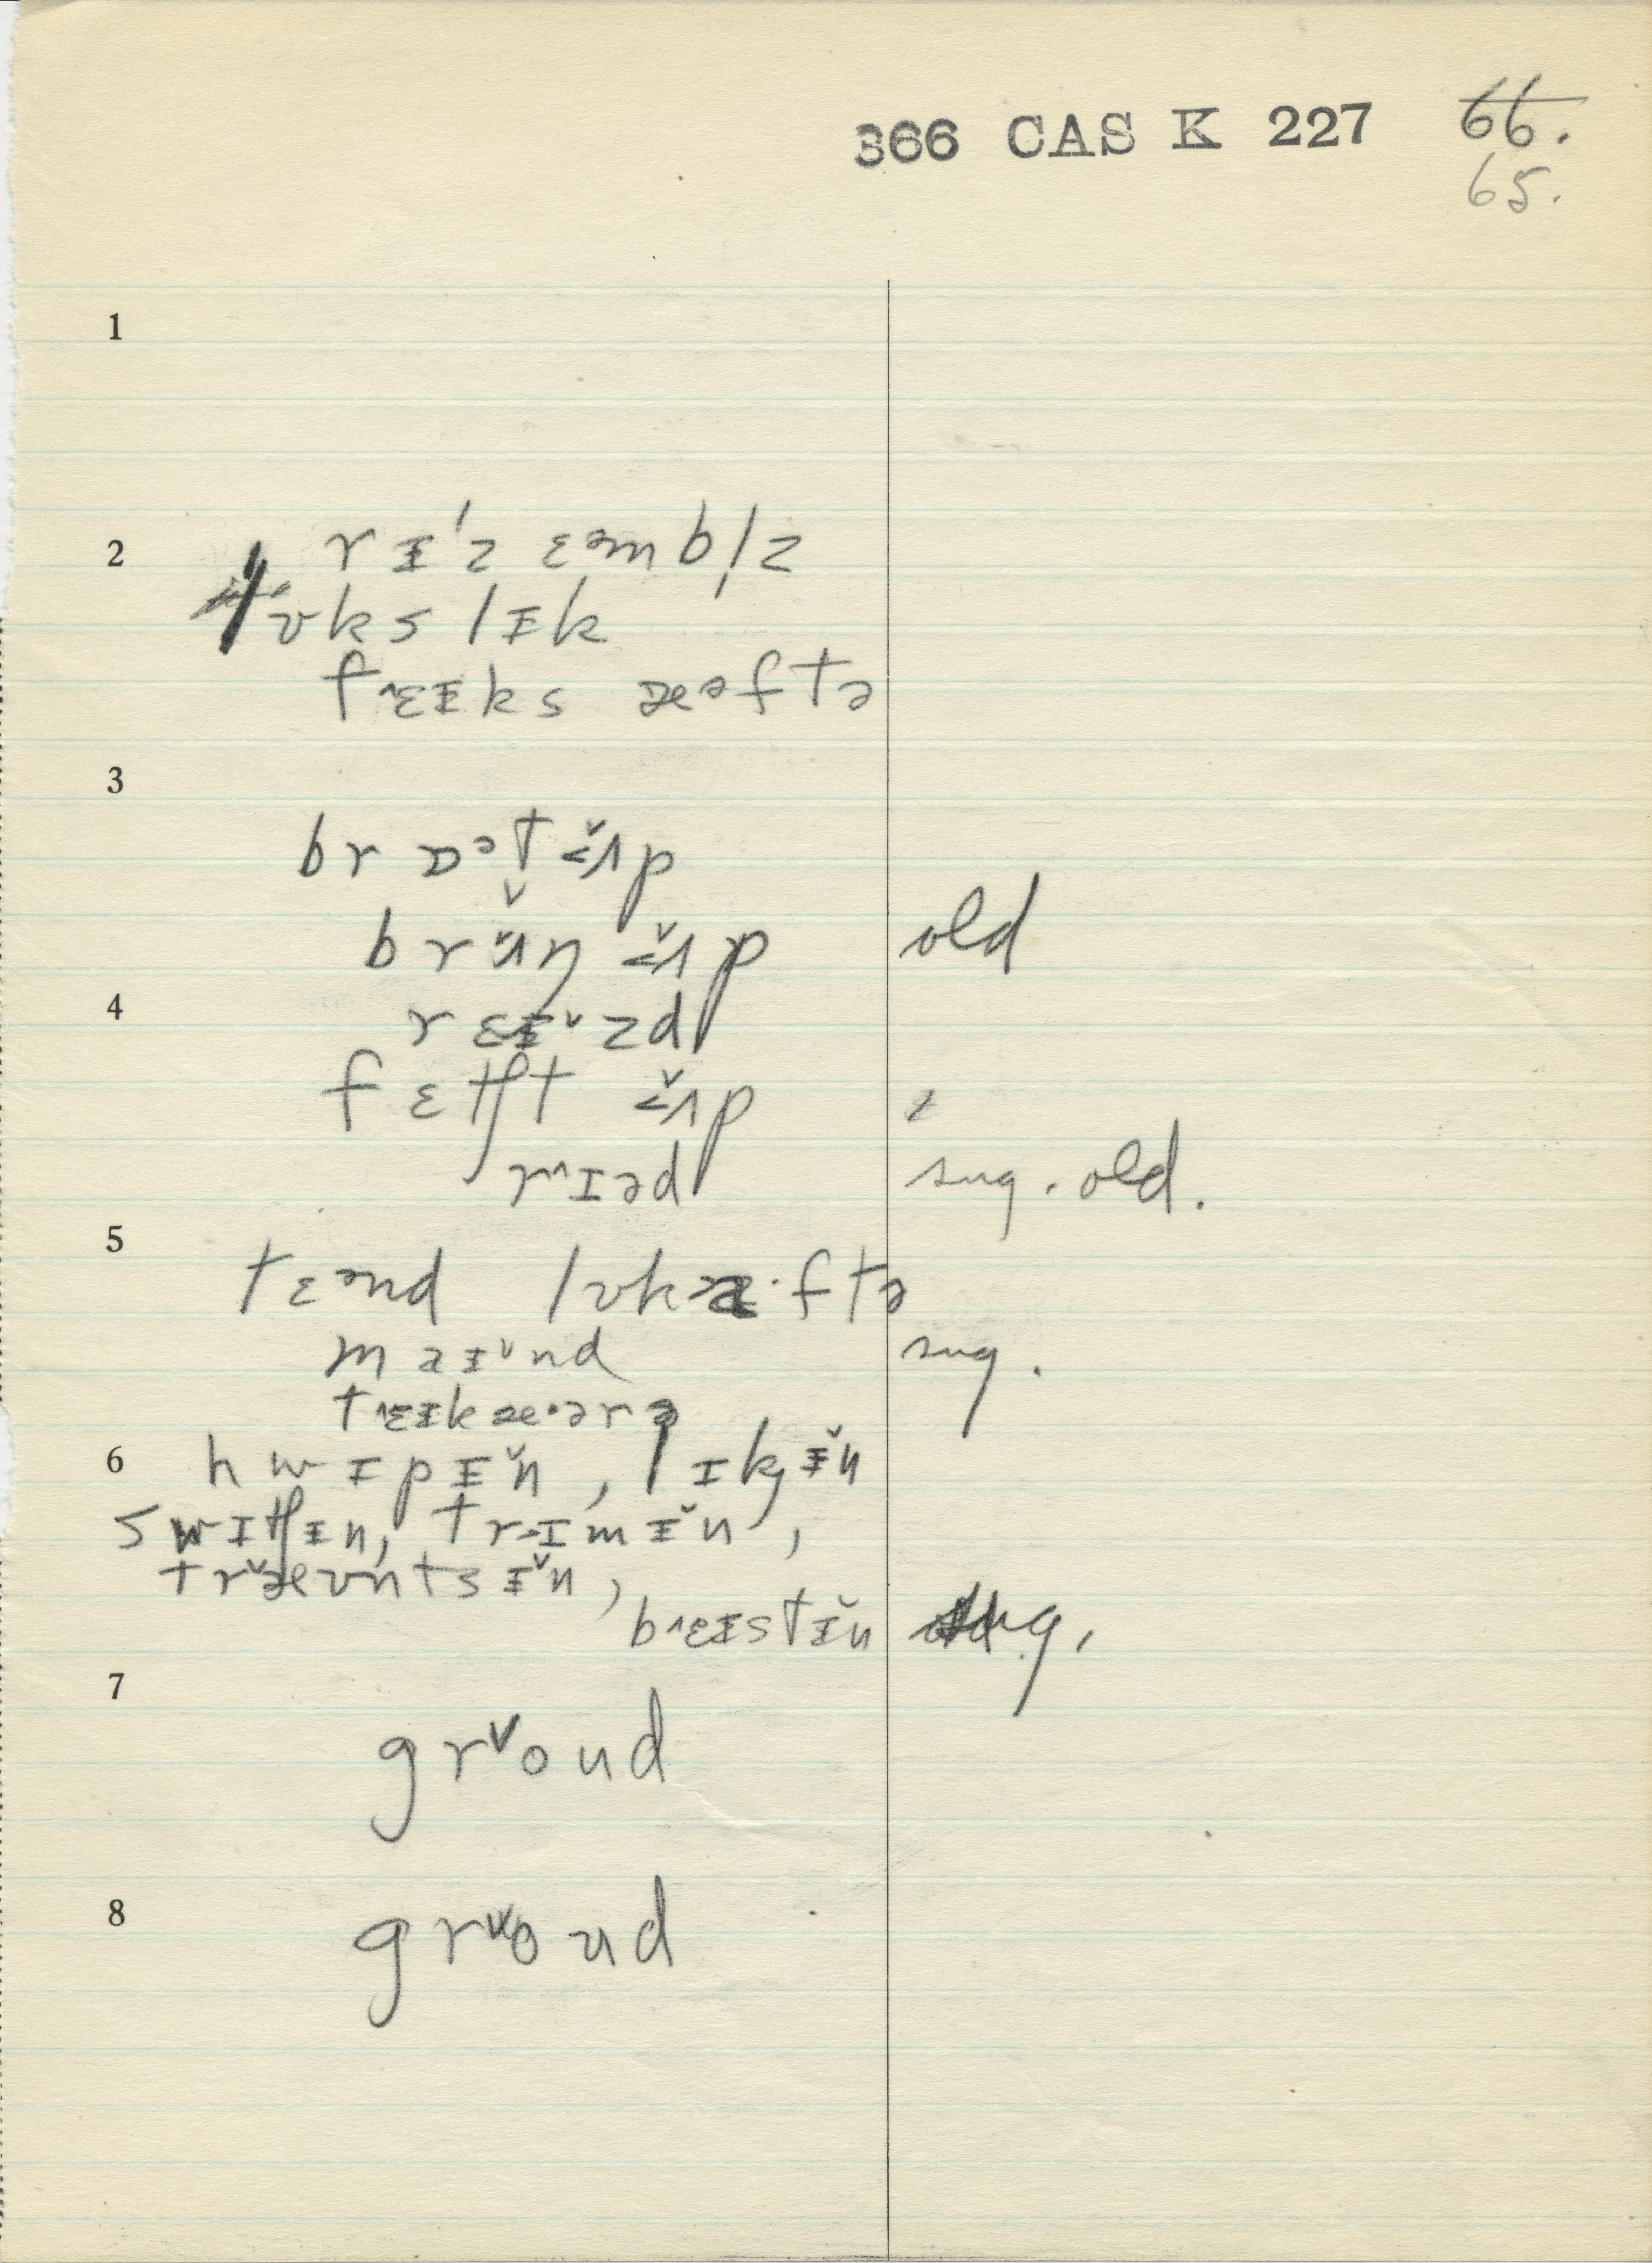 366 CAS K 227 66.
65.
1
2 rᵻˈz ɛᵊmbl̩z
ʊks lᵻk
t˄ɛᵻks æᵊftə
3
brɒᵊt ʌ̌p
brʌ̌ŋ ʌ̌p old
4 rɛᵻ˅zd
fɛtʃt ʌ̌p
r˄ɪəd sug. old.
5
tɛᵊnd lʊkæ·ftə
maᵻ˅nd sug.
t˄ɛᵻkæ·ərə
6 hwɪpᵻ̌n, lɪkᵻ̌n
swɪtʃᵻn, trɪmᵻ̌n,
tr˅æʊntsᵻ̌n,
b˄ɛᵻstᵻ̌n sug.
7
gr˅oud
8 gr˅oud